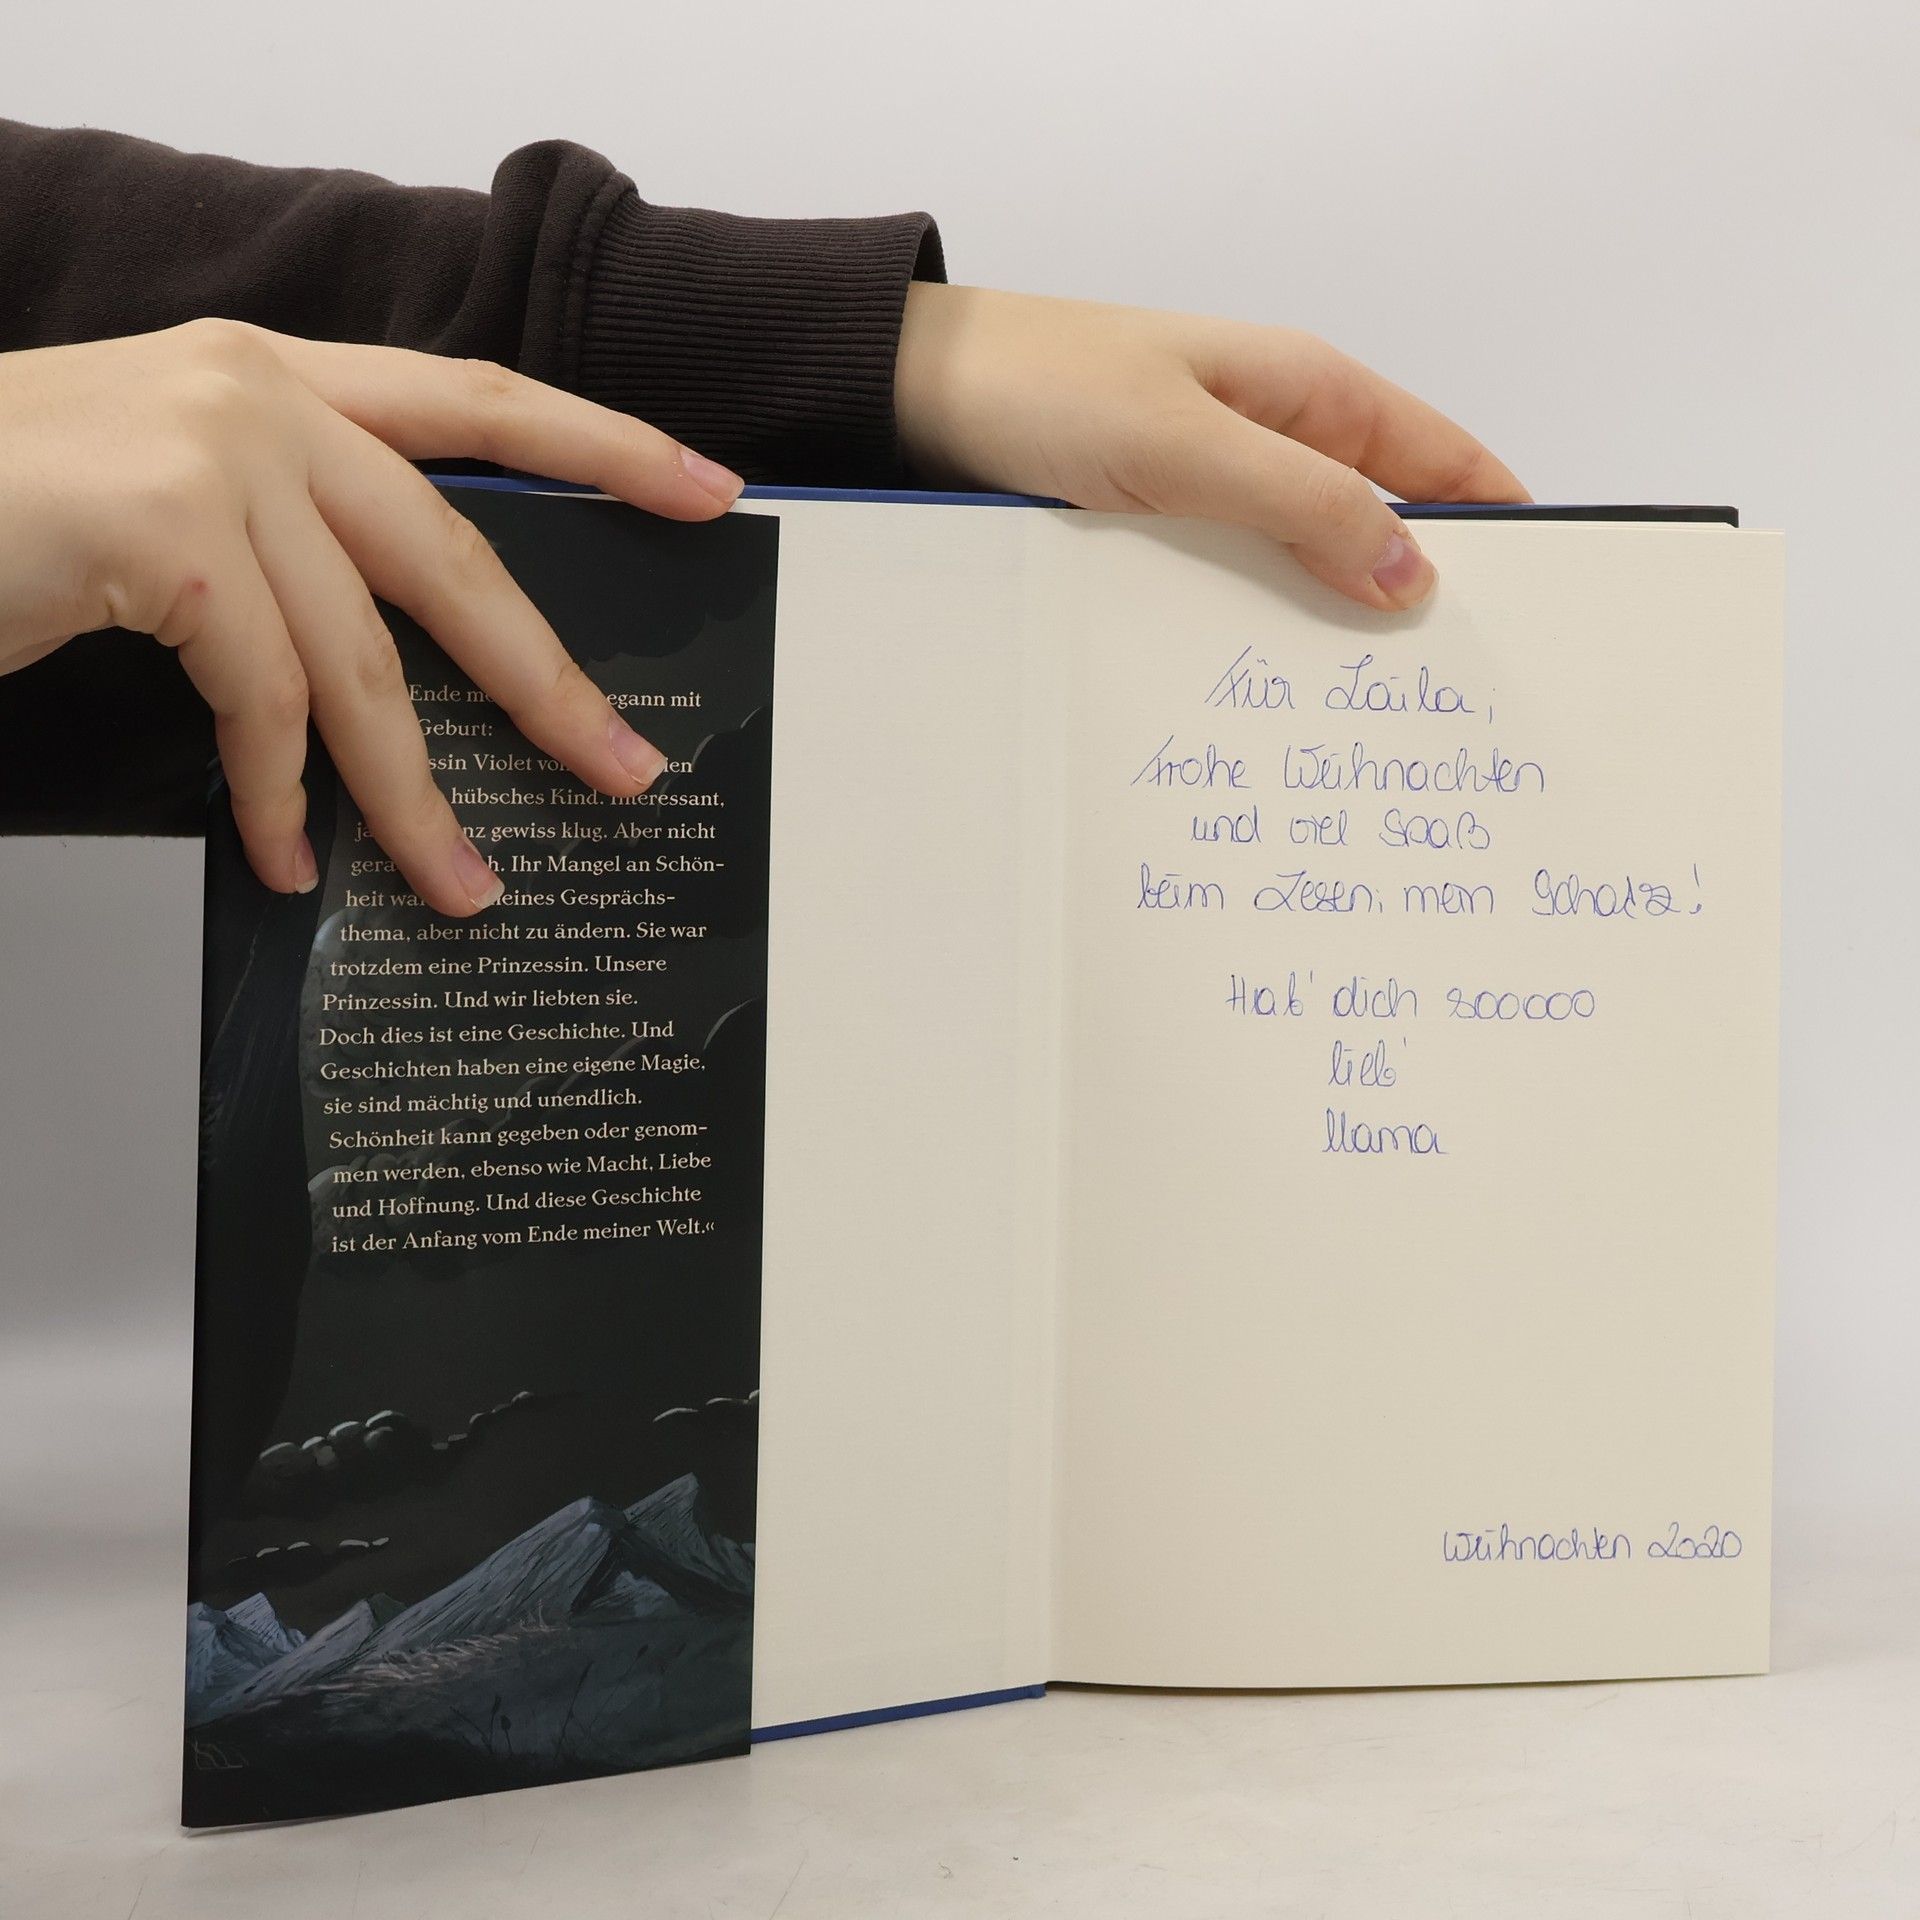 Ende me egann mit
Geburt:
ssin Violet von ien
hübsches Kind. Interessant,
ja nz gewiss klug. Aber nicht
gera h. Ihr Mangel an Schön-
heit war eines Gesprächs-
thema, aber nicht zu ändern. Sie war
trotzdem eine Prinzessin. Unsere
Prinzessin. Und wir liebten sie.
Doch dies ist eine Geschichte. Und
Geschichten haben eine eigene Magie,
sie sind mächtig und unendlich.
Schönheit kann gegeben oder genom-
men werden, ebenso wie Macht, Liebe
und Hoffnung. Und diese Geschichte
ist der Anfang vom Ende meiner Welt.«
Für Laila,
Frohe Weihnachten
und viel Spaß
beim Lesen, mein Schatz!
Hab' dich sooooo
lieb'
Mama
Weihnachten 2020